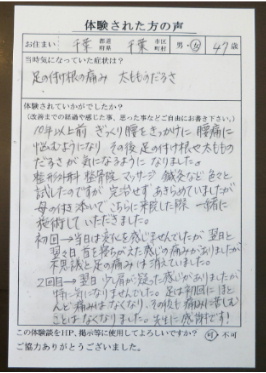 体験された方の声
お住まい 千葉 都道府県 千葉 市区町村 男・女 47歳
当時気になっていた症状は?
足の付け根の痛み 太もものだるさ
体験されていかがでしたか?
(改善までの経過や感じた事、思った事などご自由にお書き下さい。)
10年以上前 ぎっくり腰をきっかけに 腰痛に
悩むようになり その後 足の付け根や太ももの
だるさが気になるようになりました。
整形外科 整骨院 マッサージ 鍼灸など 色々と
試したのですが 完治せず あきらめていましたが
母の付き添いで こちらに来院した際 一緒に
施術していただきました。
初回→当日は変化を感じませんでしたが 翌日と
翌々日 首を寝ちがえた感じの痛みがありましたが
不思議と足の痛みは消えていました。
2回目→翌日 少し肩が凝った感じがありましたが
特に気になりませんでした。足は初回にほと
んど痛みはなくなり、その後も痛みに苦しむ
ことはなくなりました。先生に感謝です!
この体験談をHP、掲示等に使用してよろしいですか? 可・不可
ご協力ありがとうございました。